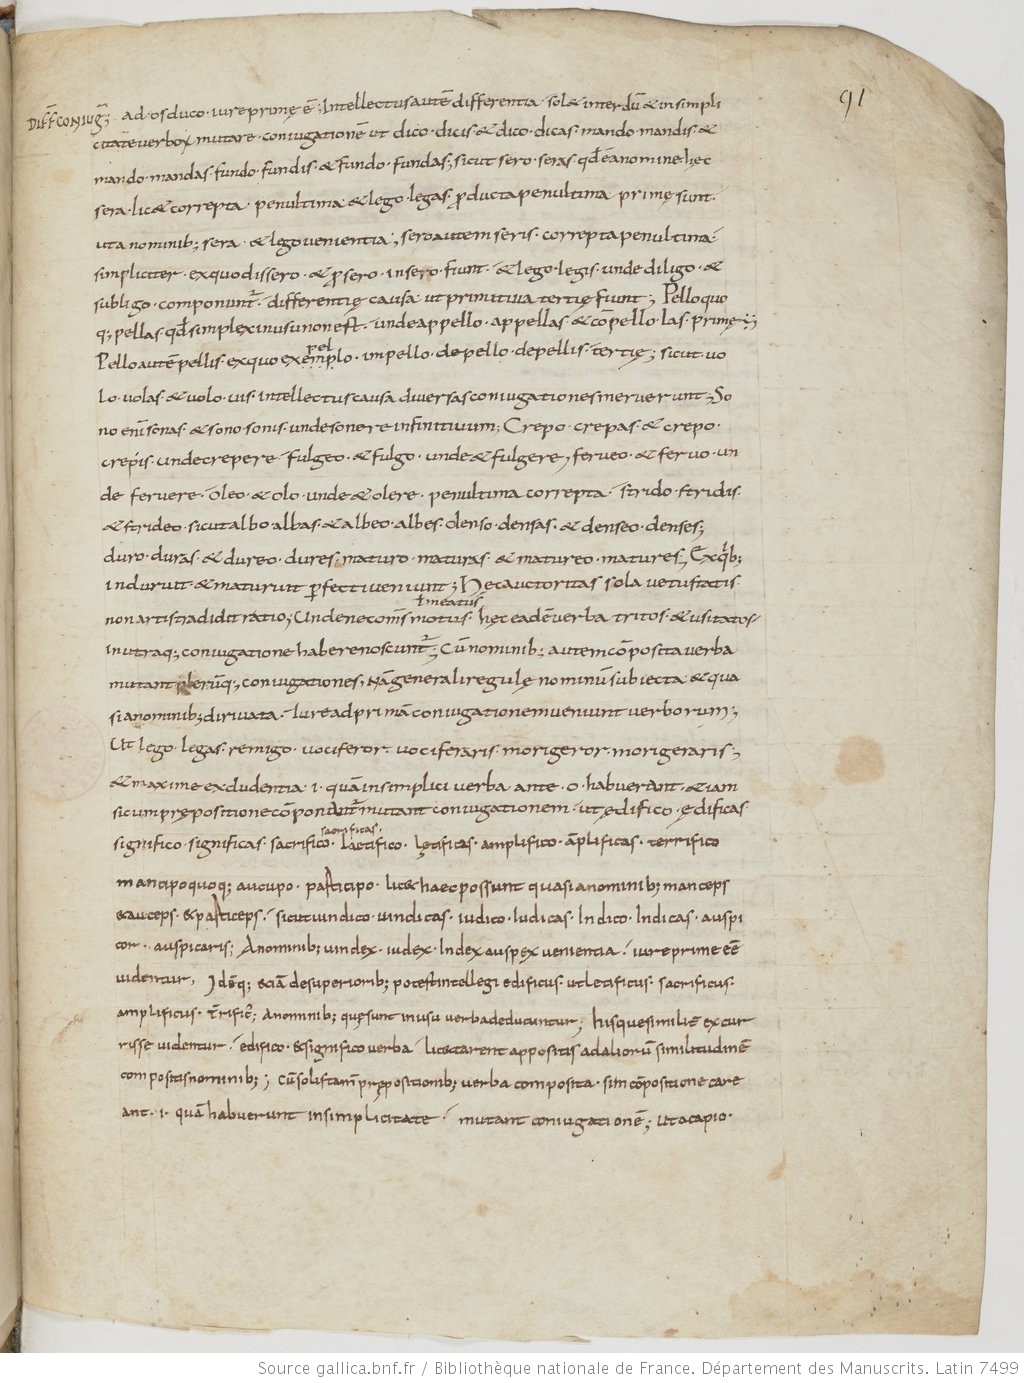 91
DIFF CONIUG; ad · os duco · iure prime ē; Intellectus autē differentia · solꝫ interdū & in simpli
citate verboꝝ mutare · coniugationē ut dico · dicis & dico · dicas · mando mandis · &
mando · mandas · fundo · fundis · & fundo · fundas; sicut sero · seras · qđ ē a nomine hęc
sera · lic& correpta · penultima & lego · legas · producta penultima primę sunt ·
ut a nominib; sera · & lego venientia; sero autem seris · correpta penultima
simpliciter · ex quo dissero · & p̄sero · insero · fiunt · & lego · legis · unde diligo · &
subligo · componunt̄ · differentię causa ut primitiva tertię fiunt; Pello quo
q; pellas qđ simplex in usu non est · unde appello · appellas & cōpello · las · primę;
Pello autē pellis · ex quo exemplo · impello · depello · depellis · tertię; sicut uo
pel
lo · uolas · & uolo · uis · intellectus causa diversas coniugationes meruerunt; So
no enī sonas · & sono · sonis · unde sonere infinitiuum; Crepo · crepas · & crepo ·
crepis · unde crepere · fulgeo · & fulgo · unde & fulgere; ferveo · & fervo · un
de fervere · oleo · & olo · unde & olere · penultima correpta · strido · stridis
& strideo · sicut albo albas · & albeo · albes · denso · densas · & denseo · denses;
duro · duras · & dureo · dures · maturo · maturas · & matureo · matures; Ex qb;
induruit & maturuit p̄fecti veniunt; Hęc auctoritas sola vetustatis
non artis tradidit ratio; Unde necoms motus · hęc eadē verba tritos · & usitatos
ł meatus
in utraq; coniugatione habere noscunt̄; Cū nominib; autem cōposita verba
mutant plerūq; coniugationes; nā generali regulę nominū subiecta & qua
si a nominib; dirivata · iure ad primā coniugationem veniunt verborum;
Ut lego · legas · remigo · vociferor · vociferaris · morigeror · morigeraris;
& maxime excludentia · i · quā in simplici verba ante · o · habuerant · & iam
si cum prepositione cōponant̄ mutant coniugationem · ut ędifico · ędificas
significo · significas · sacrifico · laetifico · lętificas · amplifico · āplificas · terrifico
sacrificas ·
mancipo quoq; aucupo · participo · lic& haec possunt quasi a nominib; manceps
& auceps · & particeps · sicut uindico · uindicas · iudico · iudicas · Indico · Indicas · auspi
cor · auspicaris; A nominib; uindex · iudex · Index auspex venientia · iure prime eē
videntur; Idēq; &iā de superiorib; potest intellegi edificus · ut letificus · sacrificus ·
amplificus · t̄rific'; a nominib; quę sunt in usu verba deducuntur; hisque similit̄ excur
risse videntur · ędifico · & significo verba lic& carent appositis ad aliorū similitudinē
compostis nominib; ; Cū solis tam̄ prepositionib; verba composita · si in cōpositione care
ant · i · quā habuerunt in simplicitate · mutant coniugationē; ut a capio ·
Source gallica.bnf.fr / Bibliothèque nationale de France. Département des Manuscrits. Latin 7499